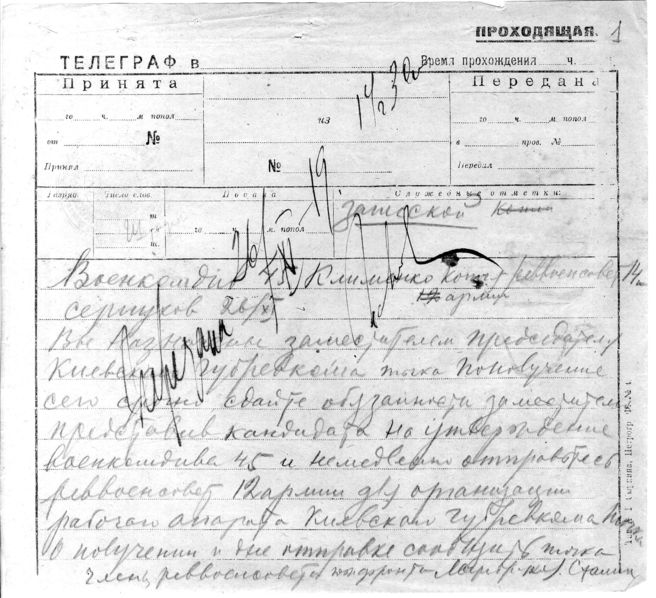 ПРОХОДЯЩАЯ. 1
ТЕЛЕГРАФ в
Время прохождения ч.
Принята
Передана
го ч. м. попол
из
14 ч 30
го ч. м попол
от №
в пров. №
Принял
№
Передал
Разряд.
Число слов.
Подана
Служебные отметки:
го ч. м. попол
ш.
ш.
26/XI 19.
записской Копи
Военкомдив 45 Клименко копия реввоенсовет 14
серпухов 26/XI армии
Вы назначены заместителем председателя
Киевского Губревкома тчка По получение
сего срочно сдайте обязанности заместителю
представив кандидата на утверждение
военкомдива 45 и немедленно отправьтесь
реввоенсовет 12 армии для организации
рабочего апарата Киевского губревкома
О получении и дне отправке сообщить тчка
Член реввоенсовета южфронта Сталин
Передана